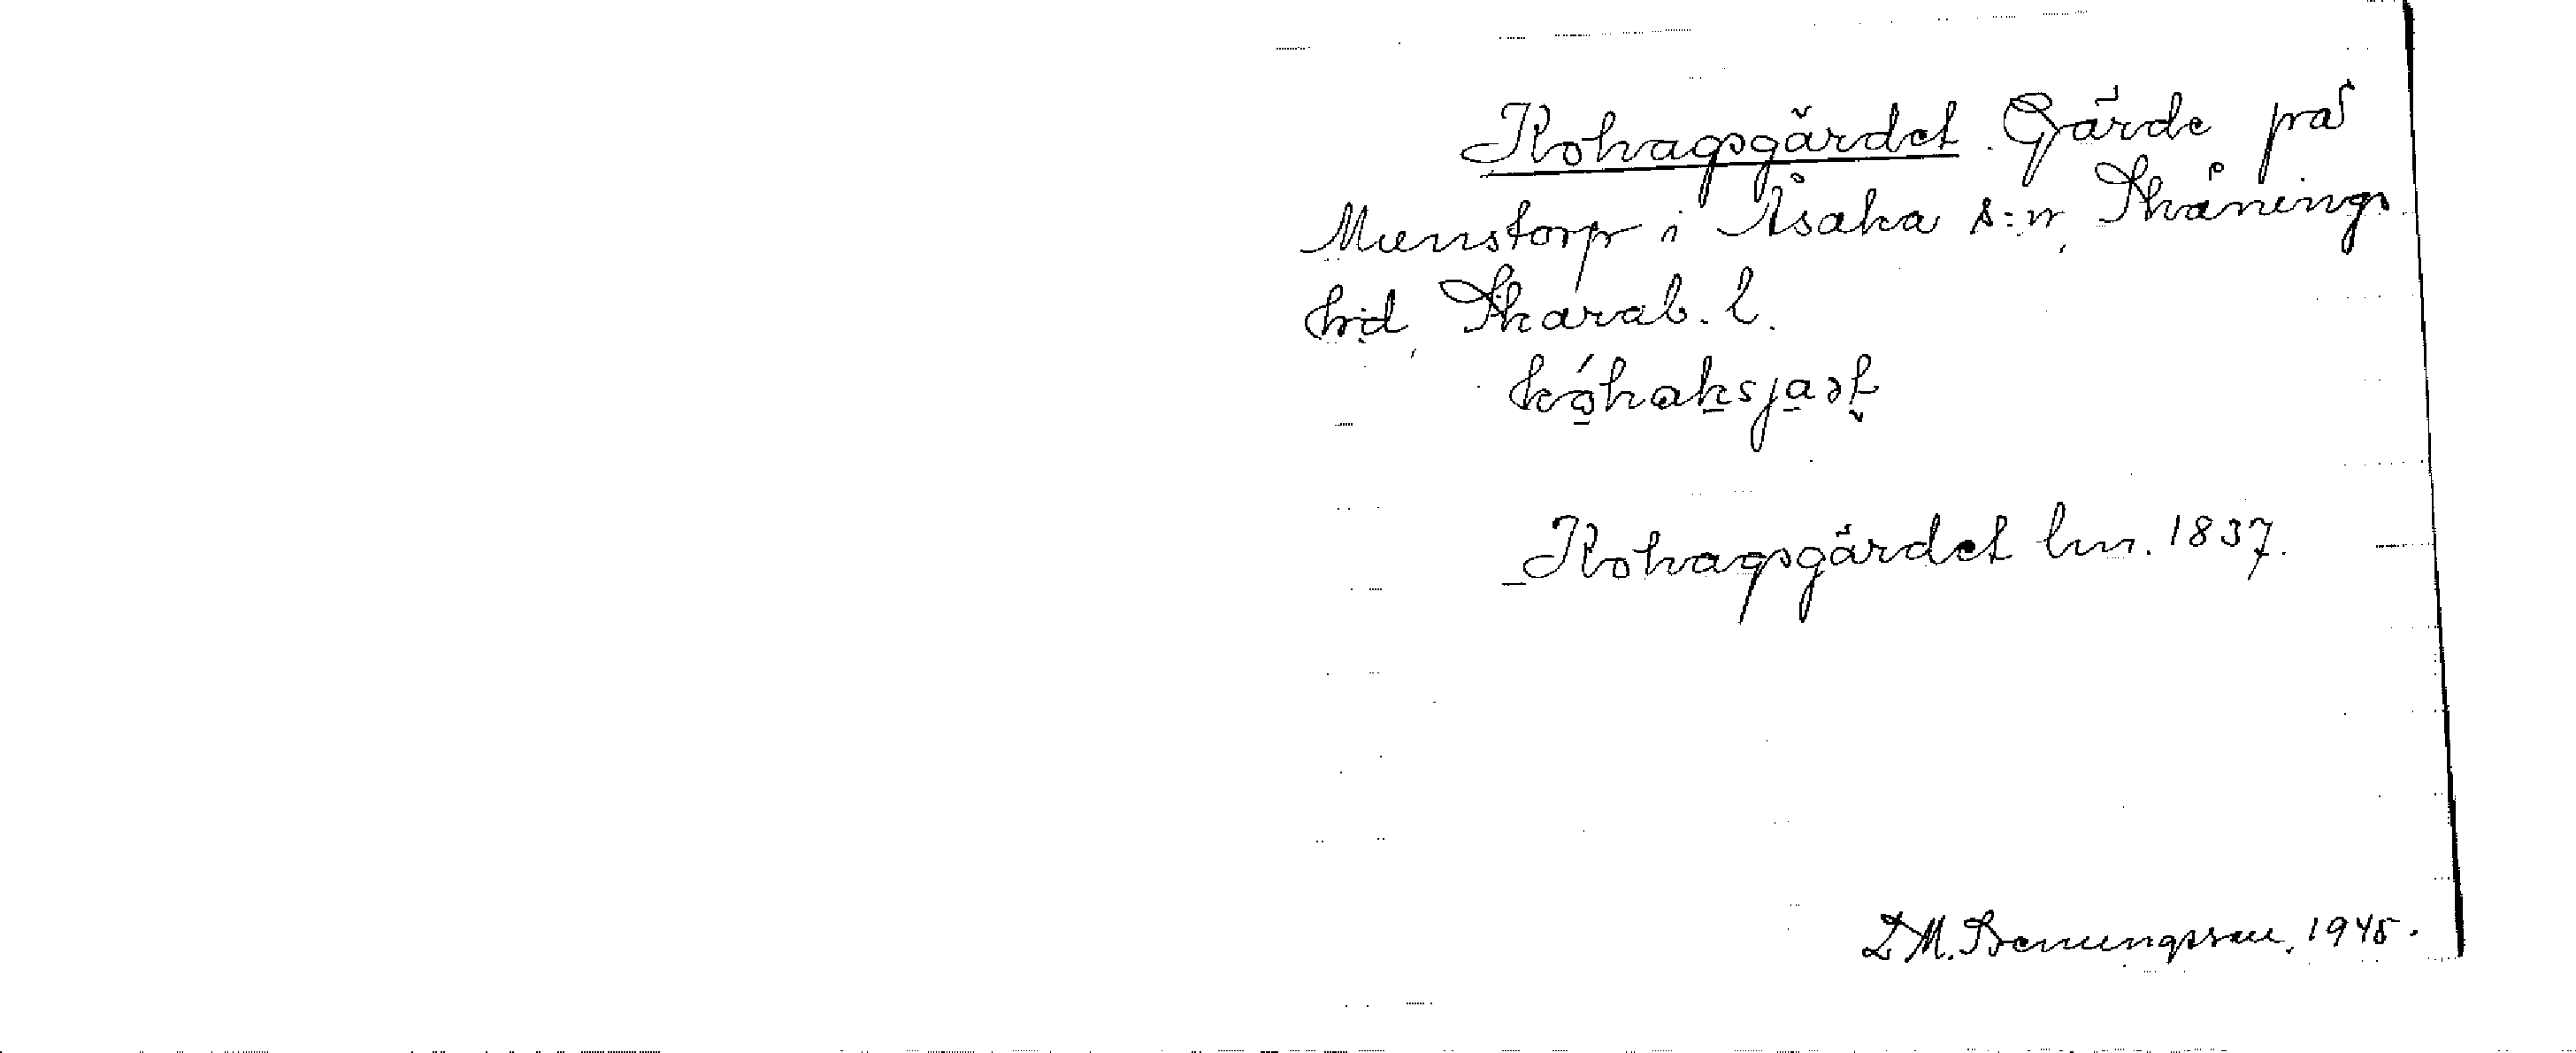 Kohagsgärdet. Gärde på
Munstorp i Åsaka s:n, Skånings
hd, Skarab. l.
Kohagsgärdet lm. 1837.
D M. Benningsson, 1945.